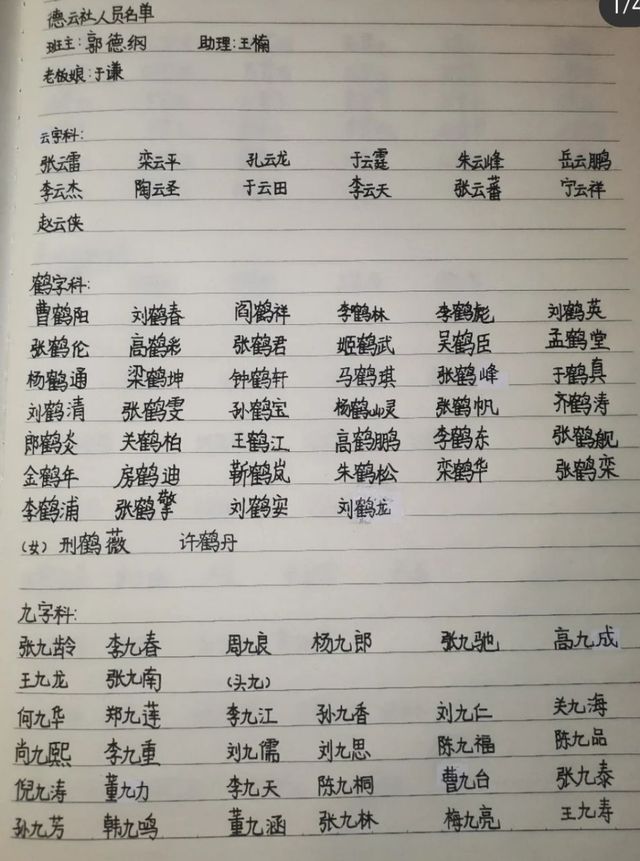 1/4
德云社人员名单
班主:郭德纲 助理:王楠
老板娘:于谦
云字科:
张云雷 栾云平 孔云龙 于云霆 朱云峰 岳云鹏
李云杰 陶云圣 于云田 李云天 张云蕃 宁云祥
赵云侠
鹤字科:
曹鹤阳 刘鹤春 阎鹤祥 李鹤林 李鹤彪 刘鹤英
张鹤伦 高鹤彩 张鹤君 姬鹤武 吴鹤臣 孟鹤堂
杨鹤通 梁鹤坤 钟鹤轩 马鹤琪 张鹤峰 于鹤真
刘鹤清 张鹤雯 孙鹤宝 杨鹤灵 张鹤帆 齐鹤涛
郎鹤炎 关鹤柏 王鹤江 高鹤鹏 李鹤东 张鹤舰
金鹤年 房鹤迪 靳鹤岚 朱鹤松 栾鹤华 张鹤栾
李鹤浦 张鹤擎 刘鹤安 刘鹤龙
(女) 刑鹤薇 许鹤丹
九字科:
张九龄 李九春 周九良 杨九郎 张九驰 高九成
王九龙 张九南 (头九)
何九华 郑九莲 李九江 孙九香 刘九仁 关九海
尚九熙 李九重 刘九儒 刘九思 陈九福 陈九品
倪九涛 董九力 李九天 陈九桐 曹九台 张九泰
孙九芳 韩九鸣 董九涵 张九林 梅九亮 王九寿